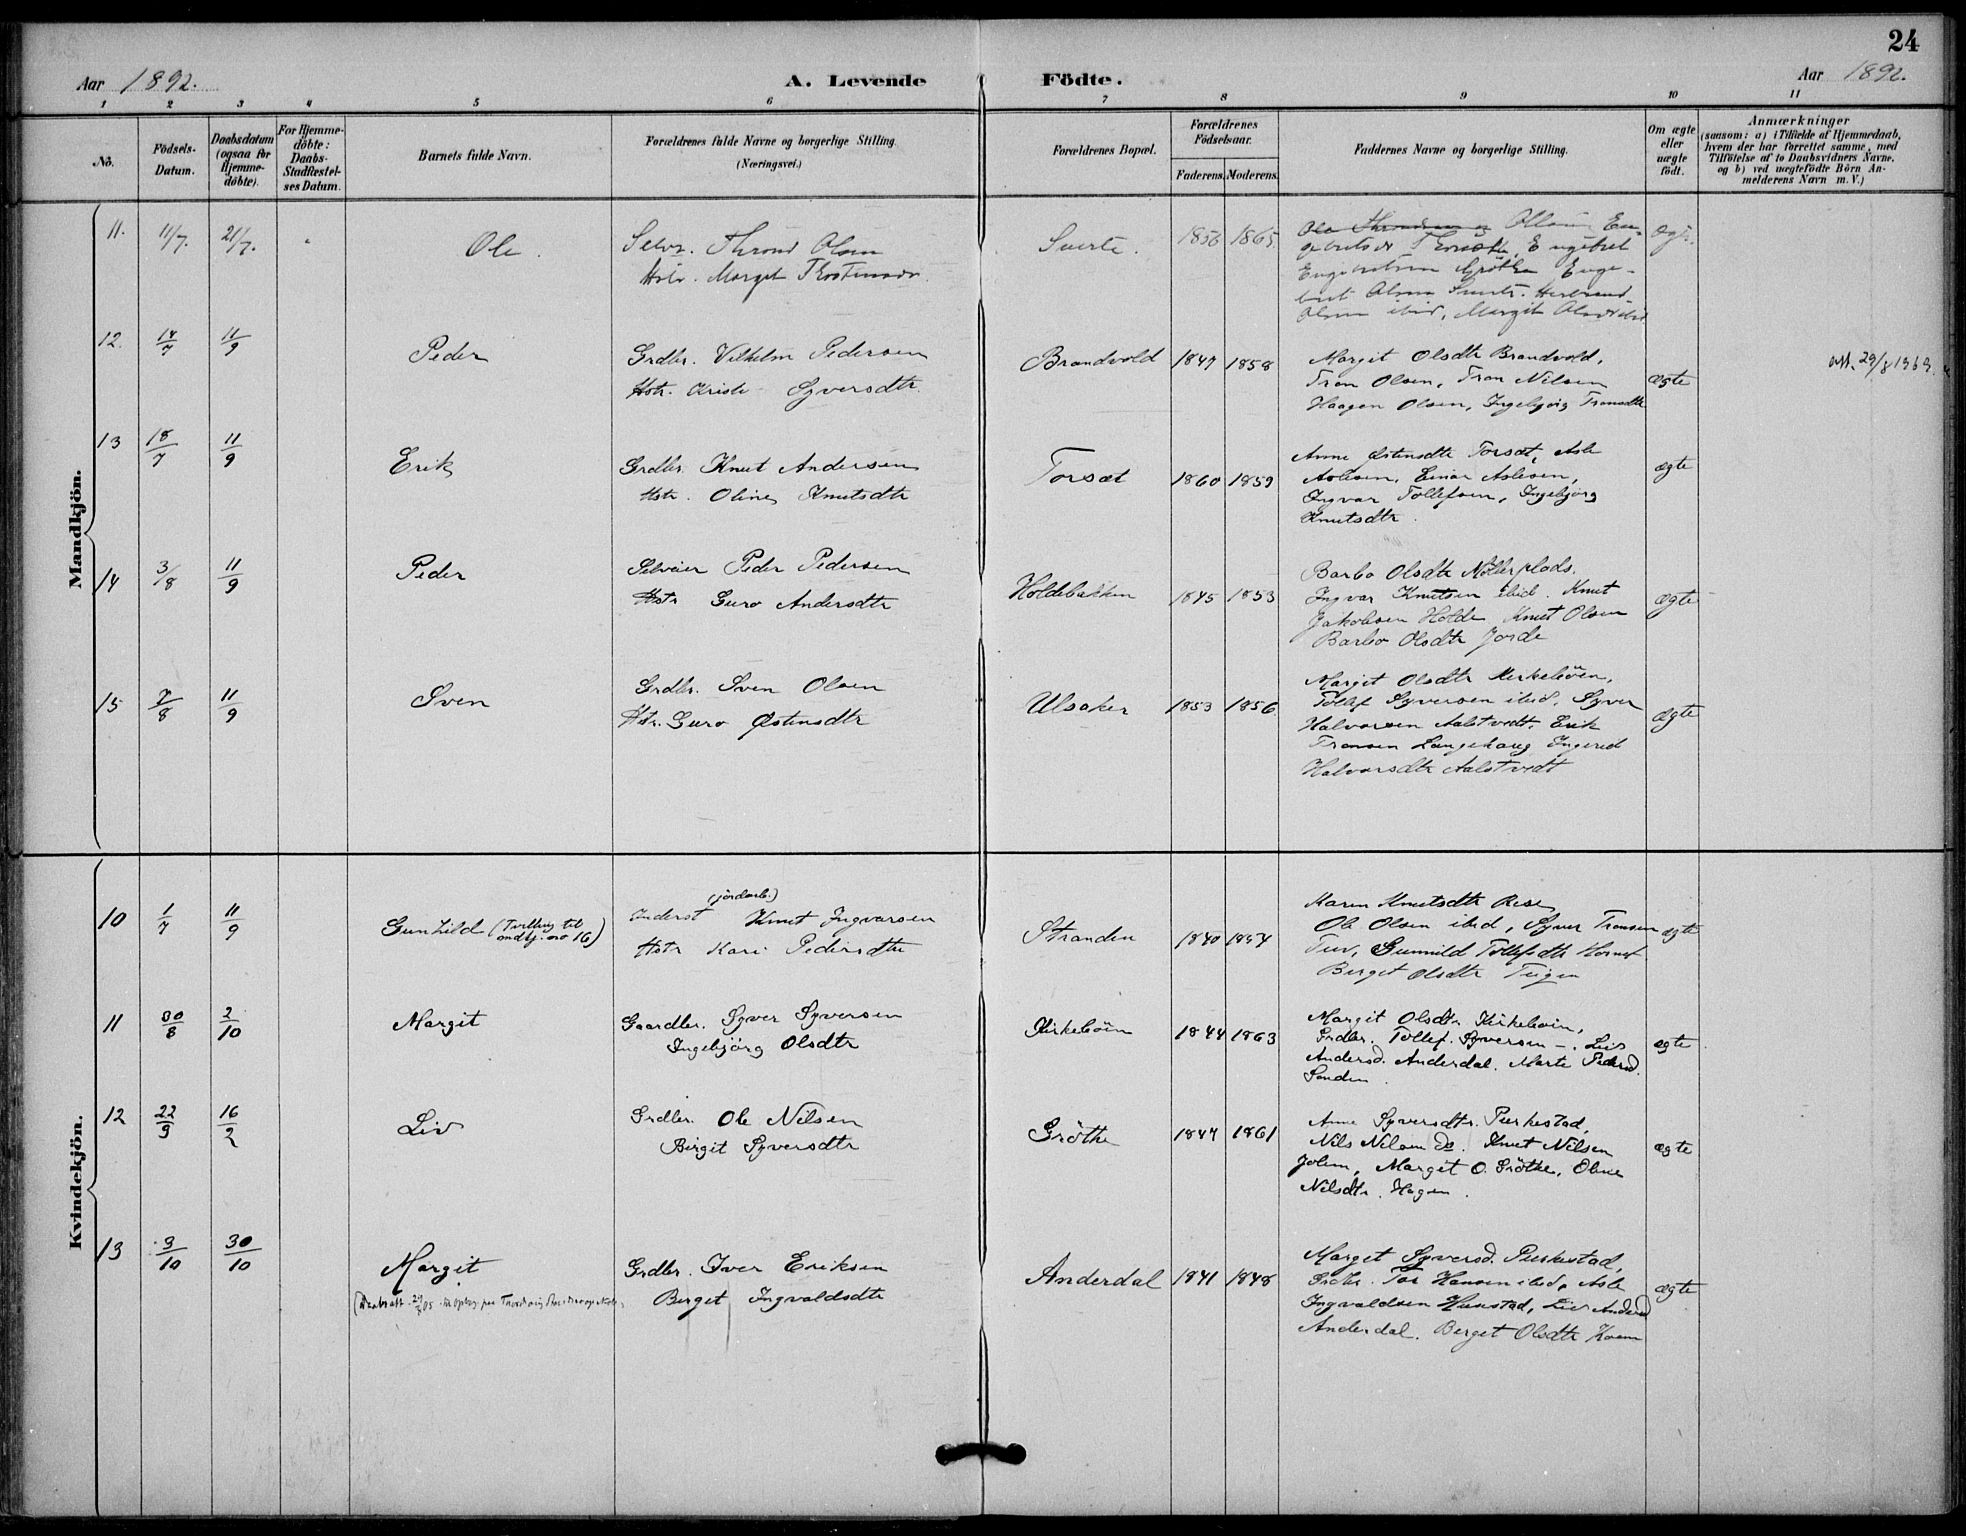 24
Aar 1892.
A. Levende Födte.
Aar 1892.
1 2 3 4 5 6 7 8 9 10 11
No.
Födsels-Datum.
Daabsdatum (ogsaa for Hjemme-döbte).
For Hjemme-döbte: Daabs-Stadfæstel-ses Datum.
Barnets fulde Navn.
Forældrenes fulde Navne og borgerlige Stilling. (Næringsvei.)
Forældrenes Bopæl.
Forældrenes Födselsaar.
Faderens. Moderens.
Faddernes Navne og borgerlige Stilling.
Om ægte eller uægte födt.
Anmærkninger
(saasom: a) i Tilfælde af Hjemmedaab,
hvem der har forrettet samme, med
Tilföielse af to Daabsvidners Navne,
og b) ved uægtefödte Börn An-
melderens Navn m. V.)
Mandkjön.
11. 11/7. 21/7. Ole
Selvr. Thrond Olsen
Margit
1856 1865
Engebret
Olsen ibid, Margit
12. 14/7 11/9 Peder
Grdbr. Vilhelm Pedersen
Hstr. Kristi Syversdtr.
Brandvold 1847 1858
Margit Olsdtr Brandvold,
Tron Olsen, Tron Nilsen
Haagen Olsen, Ingebjørg Tronsdtr
ægte
att. 29/8 1963.
13 18/7 11/9 Erik
Grdbr. Knut Andersen
Hstr. Oline Knutsdtr
Torsæt 1860 1859
Anne Østensdtr Torsæt, Asle
Aslesen, Einar Aslesen,
Ingvar Tollefsen, Ingebjörg
Knutsdtr.
ægte
14 3/8 11/9 Peder
Selveier Peder Pedersen
Hstr Guro Andersdtr
Holdebakken 1845 1853
Barbo Olsdtr
Ingvar Knutsen ibid. Knut
Jakobsen Holde Knut Olsen
Barbo Olsdtr Jorde
ægte
15 7/8 11/9 Sven
Grdbr. Sven Olsen
Hstr. Guro Østensdtr
Ulsaker 1853 1856
Margit Olsdtr Kirkeböen,
Tollef Syversen ibid, Syver
Halvorsen Aalstvedt, Erik
Tronsen Langehaug Ingerid
Halvorsdtr Aalstvedt
ægte
Kvindekjön.
10 1/7 11/9 Gunhild (Tvilling til mdkj. no 16)
(jordarb.)
Inderst Knut Ingvarsen
Hstr Kari Pedersdtr
Stranden 1840 1854
Maren Knutsdtr
Ole Olsen ibid, Syver Tronsen
Tuv, Gunnild Tollefsdtr
Birget Olsdtr Teigen
ægte
11 30/8 2/10 Margit
Gaardbr. Syver Syversen
Ingebjörg Olsdtr
Kirkeböen 1844 1863
Margit Olsdtr Kirkeböen,
Grdbr. Tollef. Syversen –. Liv
Andersd. Anderdal. Marte Pedersd.
Sonden.
ægte
12 22/9 16/2 Liv
Grdbr. Ole Nilsen
Birgit Syversdtr
Gröthe 1847 1861
Anne Syversdtr.
Nils Nilsen ds. Knut Nilsen
Margit O. Gröthe, Oline
Nilsdtr. Hagen.
ægte
13 3/10 30/10 Margit
Grdbr. Iver Eriksen
Birget Ingvaldsdtr
Anderdal 1841 1848
Marget Syversd.
Grdbr. Tor Hansen ibid, Asle
Ingvaldsen Liv Andersd
Anderdal. Berget Olsdtr
ægte